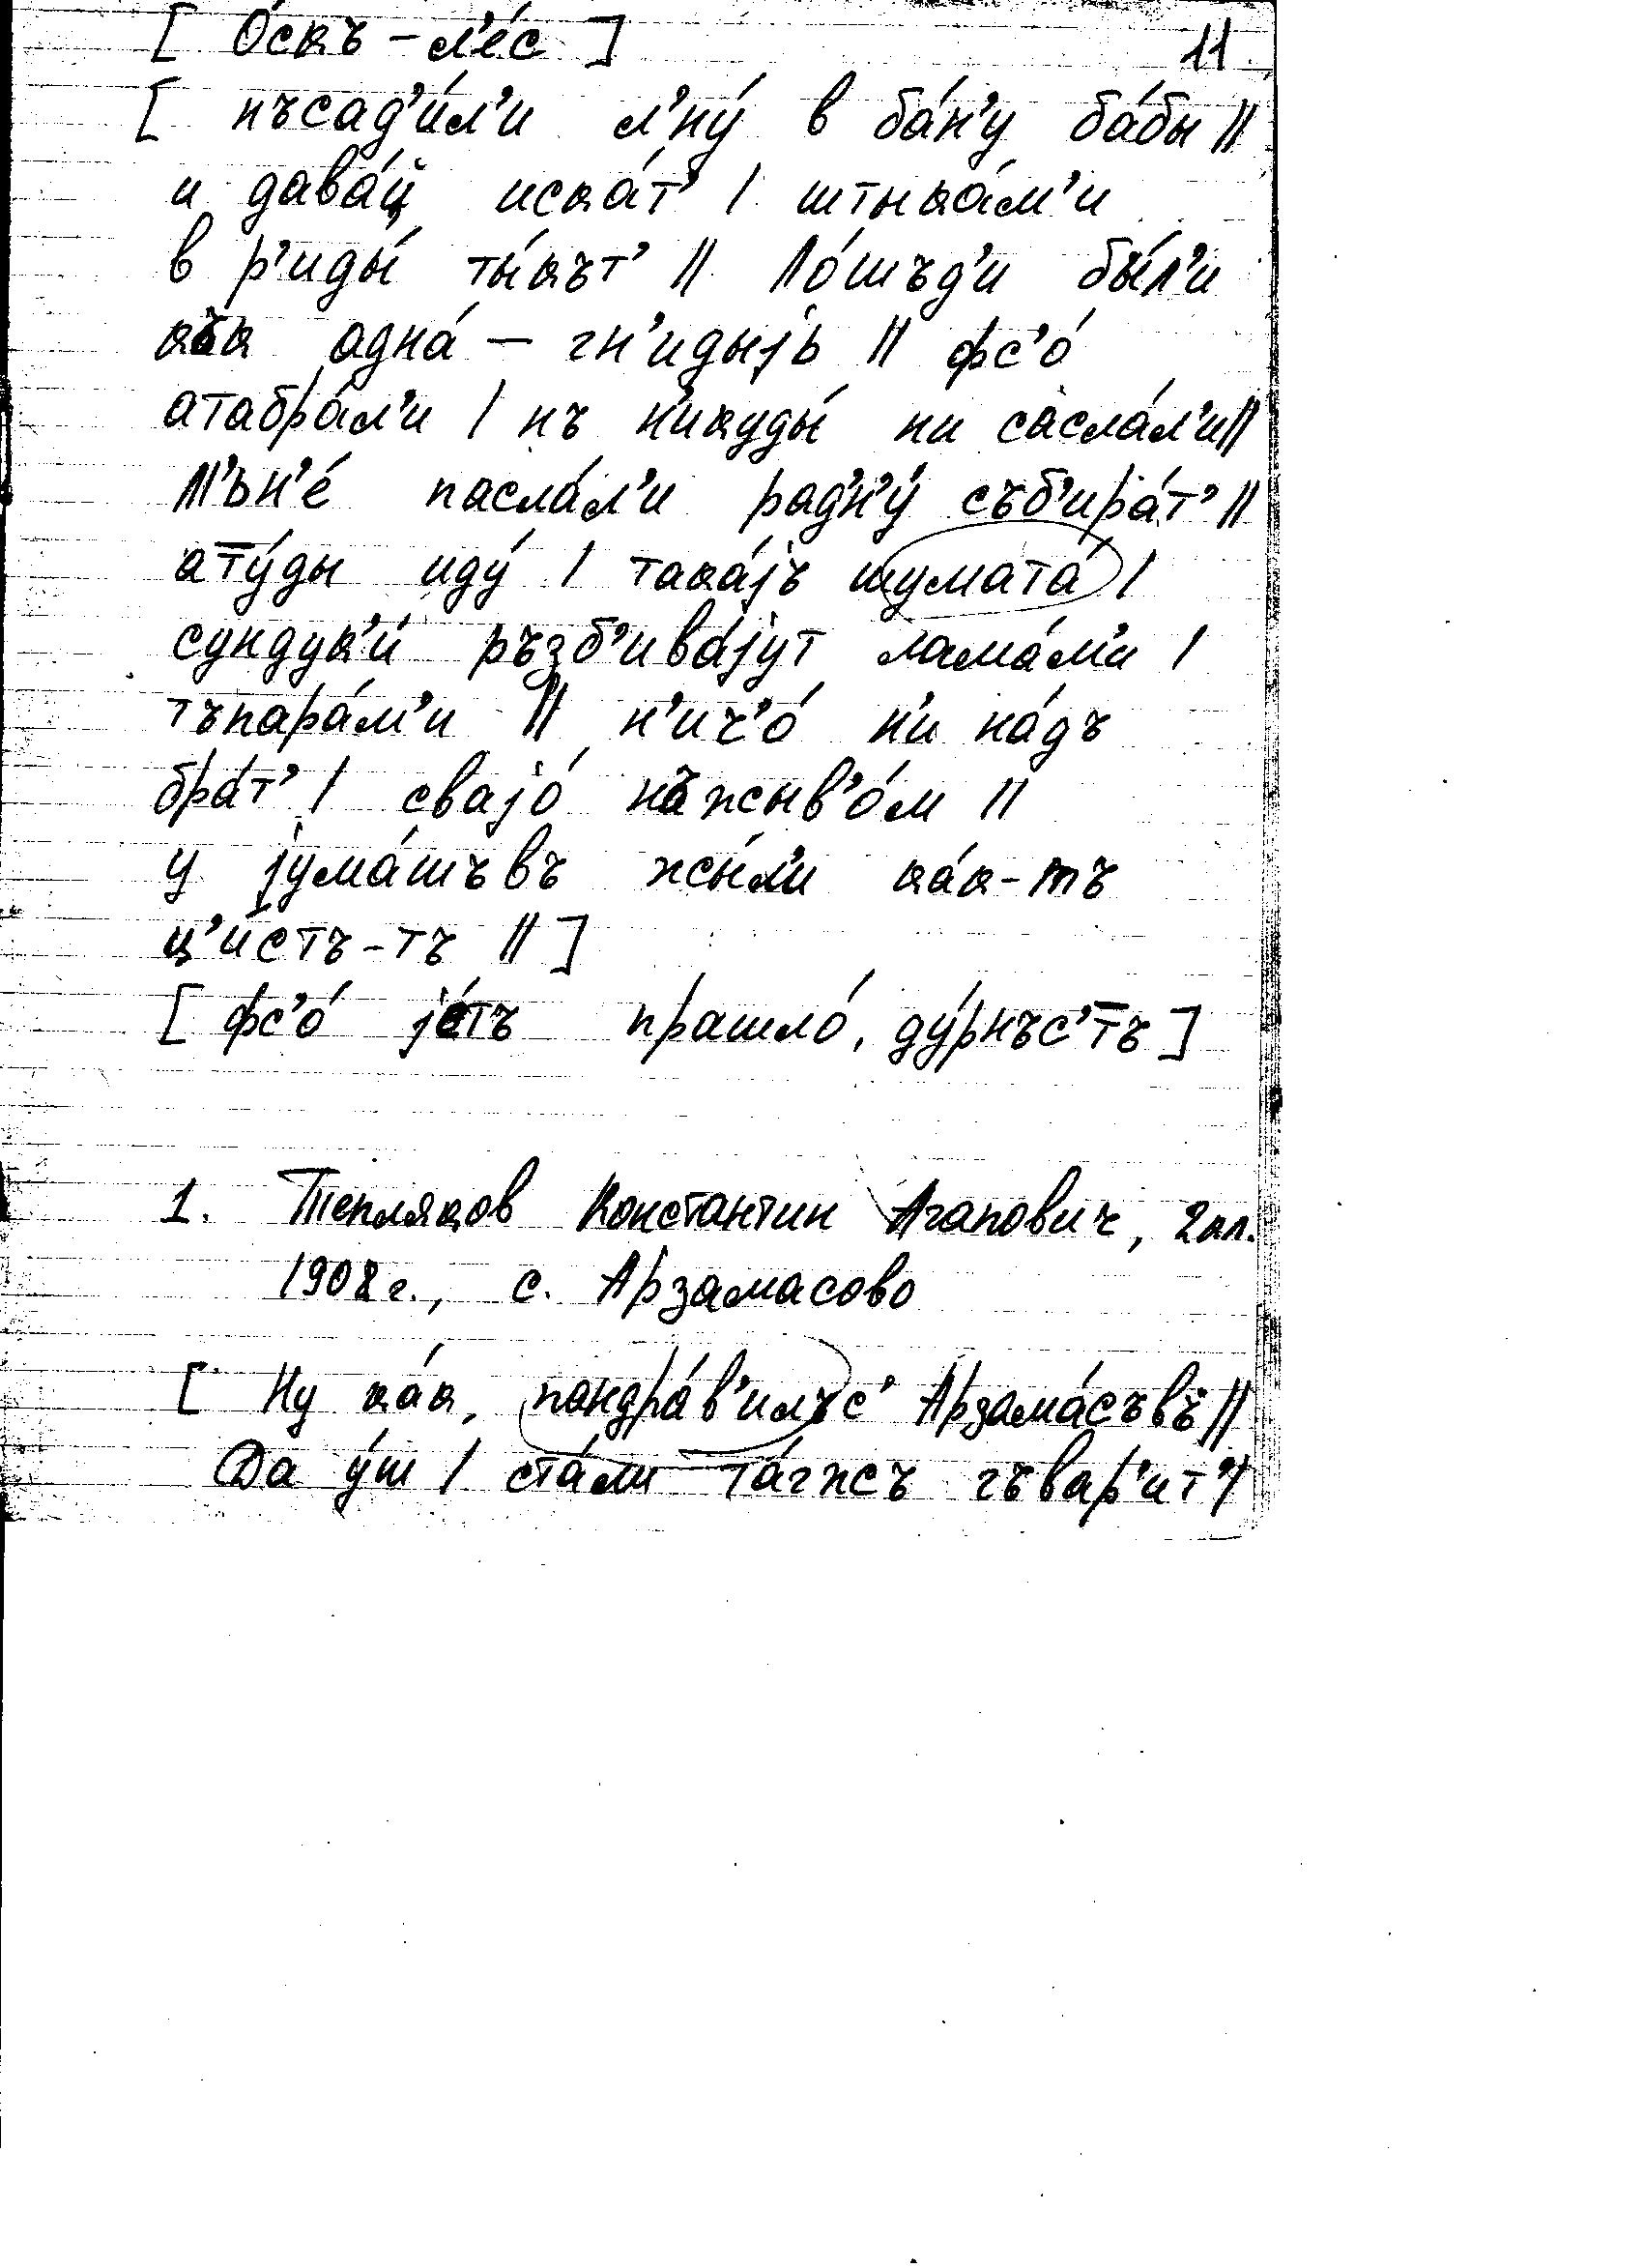 [ О́скъ – л'е́с ] 11
[ пъсад'и́л'и м'ну́ в ба́н'у ба́бы ||
и дава́й иска́т' | штыка́м'и
в р'иды́ ты́кът' || Ло́шъд'и бы́л'и
кък адна́ – гн'идыjь || фс'о́
атабра́л'и | нъ н'икуды́ ни сасла́л'и ||
М'ън'е́ пасла́л'и радн'у́ съб'ира́т' ||
ату́ды иду́ | така́jъ шумата́ |
сундук'и́ ръзб'ива́jут лама́м'и |
тъпара́м'и || н'ич'о́ н'и на́дъ
бра́т' | сваjо́ нъжыв'о́м ||
у jума́шъвъ жы́л'и ка́к-тъ
ц'и́стъ-тъ || ]
[ фс'о́ jе́тъ прашло́, ду́рнъс'т'ъ ]
1. Тепляков Константин Агапович, 2 кл.
1908 г., с. Арзамасово
[ Ну ка́к, пандра́в'илъс' Арзама́съвъ ||
Да у́ш | ста́ли та́гжъ гъвар'ит' |